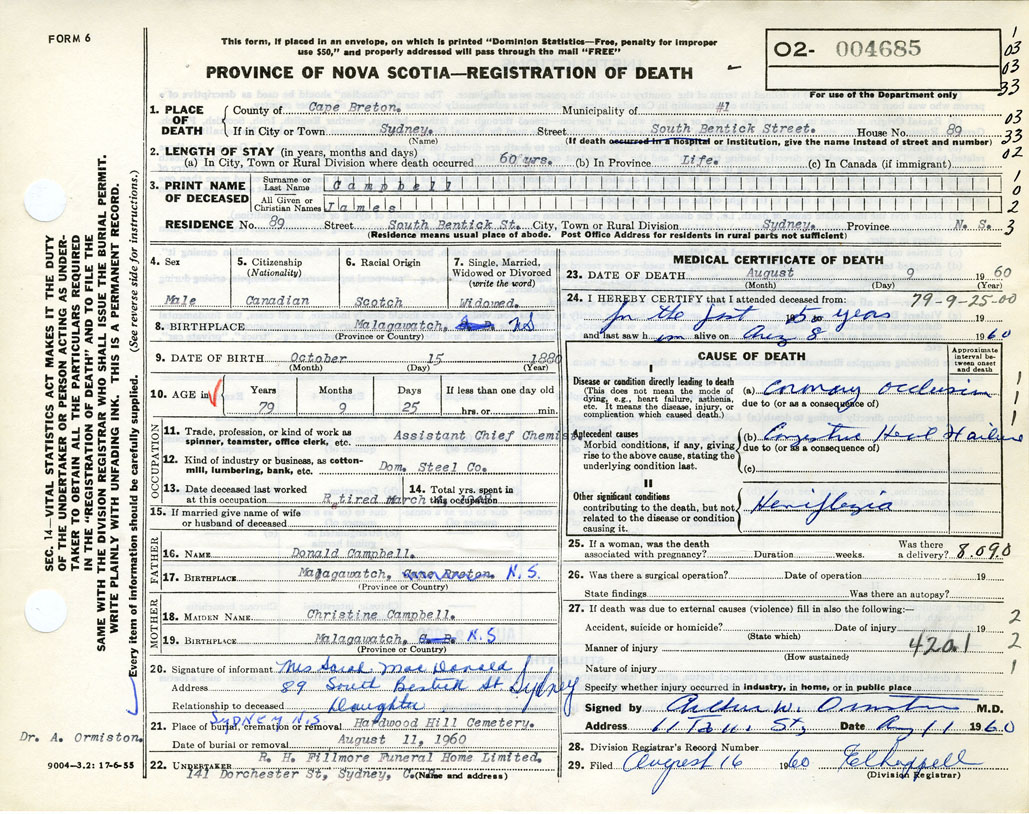 FORM 6
This form, if placed in an envelope, on which is printed "Dominion Statistics—Free, penalty for improper
use $50," and properly addressed will pass through the mail "FREE"
PROVINCE OF NOVA SCOTIA—REGISTRATION OF DEATH
02- 004685
For use of the Department only
1
03
03
33
03
33
02
1
0
2
3
1. PLACE OF DEATH
County of Cape Breton. Municipality of #1
If in City or Town Sydney. Street South Bentick Street. House No. 89
(Name) (If death occurred in a hospital or Institution, give the name instead of street and number)
2. LENGTH OF STAY (in years, months and days)
(a) In City, Town or Rural Division where death occurred 60 yrs. (b) In Province Life. (c) In Canada (if immigrant)
3. PRINT NAME OF DECEASED
Surname or Last Name Campbell
All Given or Christian Names James
RESIDENCE No. 89 Street South Bentick St. City, Town or Rural Division Sydney. Province N. S.
(Residence means usual place of abode. Post Office Address for residents in rural parts not sufficient)
4. Sex
Male
5. Citizenship
(Nationality)
Canadian
6. Racial Origin
Scotch
7. Single, Married,
Widowed or Divorced
(write the word)
Widowed.
8. BIRTHPLACE Malagawatch, NS
(Province or Country)
9. DATE OF BIRTH October 15 1880
(Month) (Day) (Year)
10. AGE in
Years Months Days If less than one day old
79 9 25 hrs. or min.
OCCUPATION
11. Trade, profession, or kind of work as
spinner, teamster, office clerk, etc. Assistant Chief Chemist
12. Kind of industry or business, as cotton-
mill, lumbering, bank, etc. Dom. Steel Co.
13. Date deceased last worked
at this occupation Retired March
14. Total yrs. spent in
this occupation
15. If married give name of wife
or husband of deceased
FATHER
16. NAME Donald Campbell.
17. BIRTHPLACE Malagawatch, Cape Breton. N.S.
(Province or Country)
MOTHER
18. MAIDEN NAME Christine Campbell.
19. BIRTHPLACE Malagawatch, C. B. N.S
(Province or Country)
20. Signature of informant Mrs Sarah Mac Donald
Address 89 South Bentick St Sydney
Relationship to deceased Daughter
SYDNEY N.S
21. Place of burial, cremation or removal Hardwood Hill Cemetery.
Date of burial or removal August 11, 1960
22. UNDERTAKER R. H. Fillmore Funeral Home Limited.
141 Dorchester St, Sydney, C.
(Name and address)
MEDICAL CERTIFICATE OF DEATH
23. DATE OF DEATH August 9 1960
(Month) (Day) (Year)
24. I HEREBY CERTIFY that I attended deceased from: 79-9-25-00
for the last 15 years 19
and last saw him alive on Aug 8 1960
CAUSE OF DEATH
Approximate
interval be-
tween onset
and death
I
Disease or condition directly leading to death
(This does not mean the mode of
dying, e.g., heart failure, asthenia,
etc. It means the disease, injury, or
complication which caused death.)
(a) Coronary Occlusion
due to (or as a consequence of)
Antecedent causes
Morbid conditions, if any, giving
rise to the above cause, stating the
underlying condition last.
(b) Congestive Heart Failure
due to (or as a consequence of)
(c)
II
Other significant conditions
contributing to the death, but not
related to the disease or condition
causing it.
Hemiplegia
1
1
1
25. If a woman, was the death
associated with pregnancy? Duration weeks. Was there
a delivery? 8.090
26. Was there a surgical operation? Date of operation 19
State findings Was there an autopsy?
27. If death was due to external causes (violence) fill in also the following:—
Accident, suicide or homicide? Date of injury 19
(State which)
Manner of injury 420.1
(How sustained)
Nature of injury
2
2
1
Specify whether injury occurred in industry, in home, or in public place
Signed by Arthur W. Ormiston M.D.
Address St, Date Aug 11 1960
28. Division Registrar's Record Number
29. Filed August 16 1960
(Division Registrar)
SEC. 14—VITAL STATISTICS ACT MAKES IT THE DUTY
OF THE UNDERTAKER OR PERSON ACTING AS UNDER-
TAKER TO OBTAIN ALL THE PARTICULARS REQUIRED
IN THE "REGISTRATION OF DEATH" AND TO FILE THE
SAME WITH THE DIVISION REGISTRAR WHO SHALL ISSUE THE BURIAL PERMIT.
WRITE PLAINLY WITH UNFADING INK. THIS IS A PERMANENT RECORD.
Every item of information should be carefully supplied. (See reverse side for instructions.)
Dr. A. Ormiston.
9004—3.2: 17-6-55